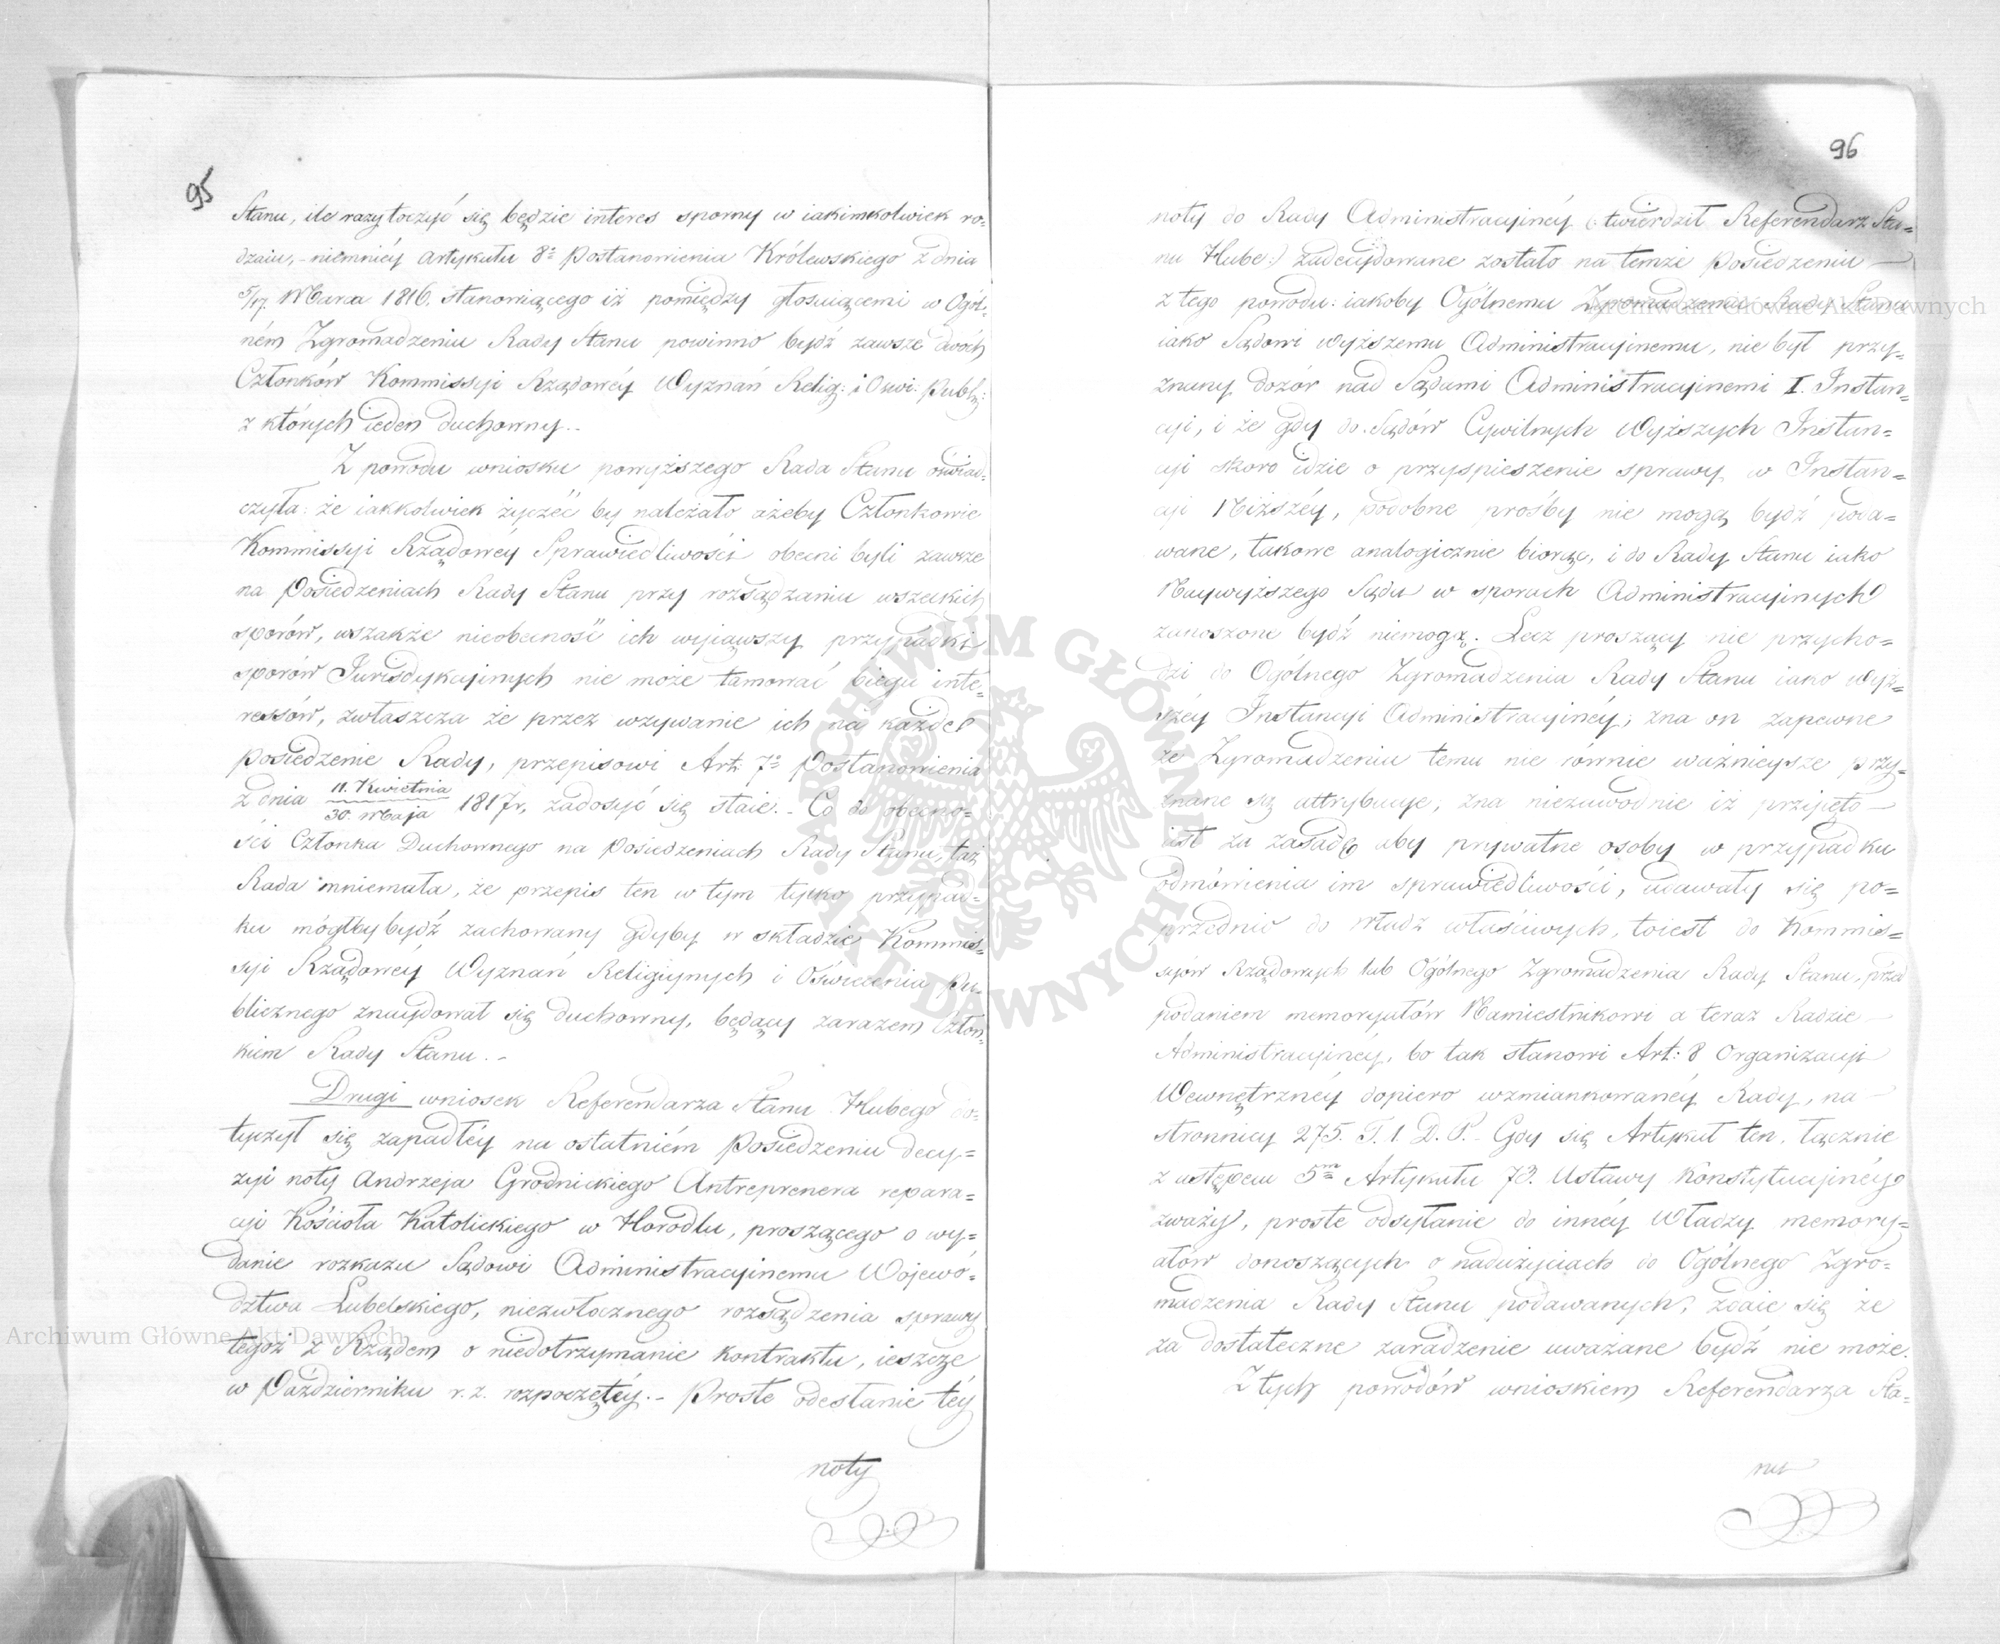 95
Stanu, ile razy toczyć się będzie interes sporny w iakimkolwiek ro-
dzaiu, - niemniéy Artykułu 8º Postanowienia Królewskiego z dnia
5/17. Marca 1816. stanowiącego iż pomiędzy głosuiącemi w Ogól-
ném Zgromadzeniu Rady Stanu powinno bydź zawsze dwóch
Członków Kommissyi Rządowéy Wyznań Relig: i Oświ: Publ:
z których ieden duchowny.-
Z powodu wniosku powyższego Rada Stanu oświad-
czyła: że iakkolwiek życzéć by należało ażeby Członkowie
Kommissyi Rządowéy Sprawiedliwości obecni byli zawsze
na Posiedzeniach Rady Stanu przy rozsądzaniu wszelkich
sporów, wszakże nieobecność ich wyiąwszy przypadki
sporów Jurisdykcyinych nie może tamować biegu inte-
ressów, zwłaszcza że przez wzywanie ich na każde
posiedzenie Rady, przepisowi Art. 7º Postanowienia
z dnia 11. Kwietnia/30. Maja 1817 r, zadosyć się staie.- Co do obecno-
ści Członka Duchownego na Posiedzeniach Rady Stanu, taż
Rada mniemała, że przepis ten w tym tylko przypad-
ku mógłby bydź zachowany gdyby w składzie Kommis-
syi Rządowéy Wyznań Religiynych i Oświecenia Pu-
blicznego znaydował się duchowny, będący zarazem Człon-
kiem Rady Stanu.-
Drugi wniosek Referendarza Stanu Hubego do-
tyczył się zapadłéy na ostatniém Posiedzeniu decy-
zyi noty Andrzeja Grodnickiego Antreprenera repara-
cyi Kościoła Katolickiego w Horodlu, proszącego o wy-
danie rozkazu Sądowi Administracyinemu Wojewó-
dztwa Lubelskiego, niezwłocznego rozsądzenia sprawy
tegoż z Rządem o niedotrzymanie kontraktu, ieszcze
w Październiku r. z. rozpoczętéy.- Proste odesłanie téy
noty
96
noty do Rady Administracyinéy (: twierdził Referendarz Sta-
nu Hube:) zadecydowane zostało na temże Posiedzeniu
z tego powodu: iakoby Ogólnemu Zgromadzeniu Rady Stanu
iako Sądowi wyższemu Administracyinemu, nie był przy-
znany dozór nad Sądami Administracyinemi I. Instan-
cyi, i że gdy do Sądów Cywilnych Wyższych Instan-
cyi skoro idzie o przyspieszenie sprawy w Instan-
cyi Niższéy, podobne prośby nie mogą bydź poda-
wane, takowe analogicznie biorąc, i do Rady Stanu iako
Naywyższego Sądu w sporach Administracyinych
zanoszone bydź niemogą. Lecz proszący nie przycho-
dzi do Ogólnego Zgromadzenia Rady Stanu iako wyż-
széy Instancyi Administracyinéy; zna on zapewne
że Zgromadzeniu temu nie równie ważnieysze przy-
znane są attrybucye; zna niezawodnie iż przyięto
iest za zasadę aby prywatne osoby w przypadku
odmówienia im sprawiedliwości, udawały się po-
przednio do Władz właściwych, toiest do Kommis-
syów Rządowych lub Ogólnego Zgromadzenia Rady Stanu, przed
podaniem memoryałów Namiestnikowi a teraz Radzie
Administracyinéy, bo tak stanowi Art: 8 Organizacyi
Wewnętrznéy dopiero wzmiankowanéy Rady, na
stronnicy 275. T. 1. D. P.- Gdy się Artykuł ten, łącznie
z ustępem 5m Artykułu 73. Ustawy Konstytucyinéy
zważy, proste odsyłanie do innéy Władzy memory-
ałów donoszących o nadużyciach do Ogólnego Zgro-
madzenia Rady Stanu podawanych, zdaie się że
za dostateczne zaradzenie uważane bydź nie może.
Z tych powodów wnioskiem Referendarza Sta-
nu
Archiwum Główne Akt Dawnych
Archiwum Główne Akt Dawnych
ARCHIWUM GŁÓWNE AKT DAWNYCH